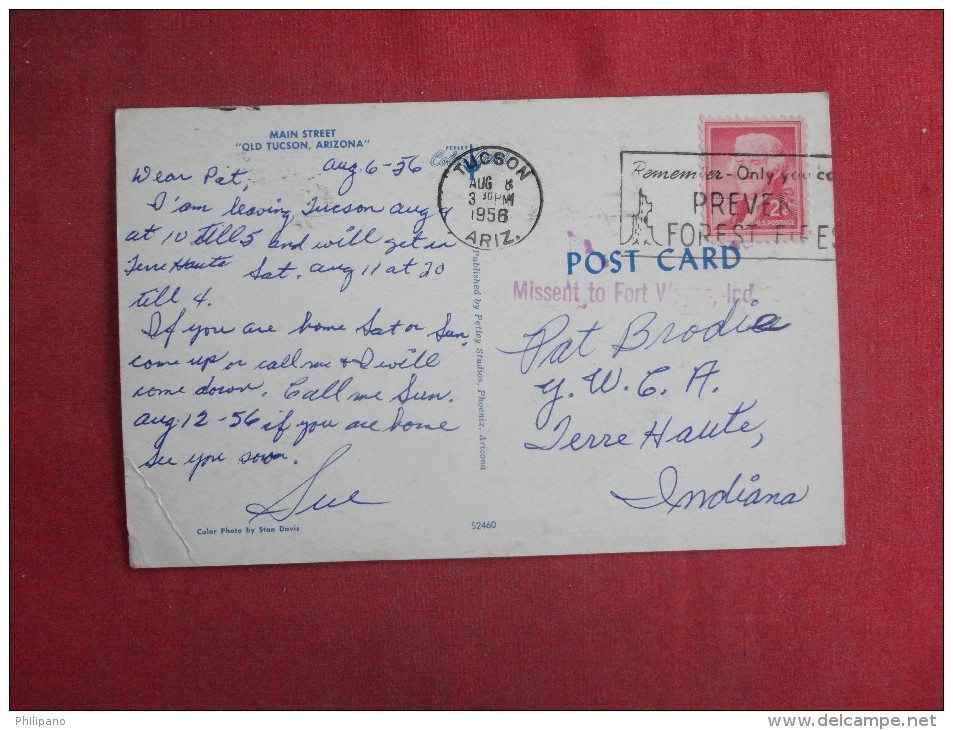 MAIN STREET
"OLD TUCSON, ARIZONA"
Aug. 6-56
Dear Pat,
I'am leaving Tucson Aug 9
at 10 till 5 and will get in
Terre Haute Sat. Aug 11 at 20
till 4.
If you are home Sat or Sun,
come up or call me & I will
come down. Call me Sun.
Aug. 12-56 if you are home
See you soon.
Sue
Color Photo by Stan Davis
52460
Published by Petley Studios, Phoenix, Arizona
PETLEY
TUCSON
AUG 8
3 30 PM
1956
ARIZ.
Remember - Only you ca
PREVEN
FOREST FIRES
2¢
U.S. POSTAGE
POST CARD
Missent to Fort Wayne, Ind.
Pat Brodie
Y.W.C.A.
Terre Haute,
Indiana
Philipano
www.delcampe.net